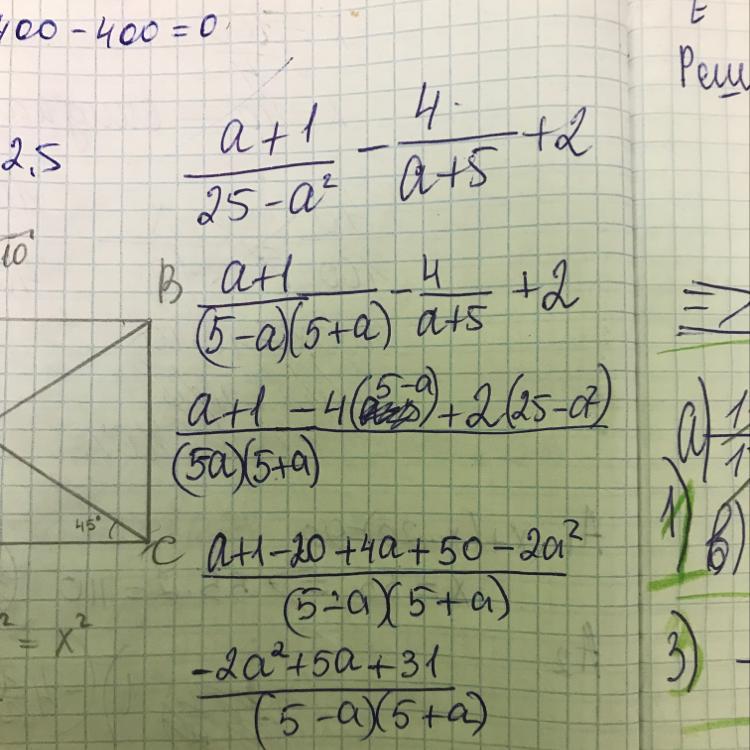 400 - 400 = 0
2,5
10
(a+1)/(25-a²) - 4/(a+5) + 2
B
(a+1)/((5-a)(5+a)) - 4/(a+5) + 2
(a+1-4(5-a)+2(25-a²))/((5a)(5+a))
45°
C
(a+1-20+4a+50-2a²)/((5-a)(5+a))
² = x²
(-2a²+5a+31)/((5-a)(5+a))
Реш
а)
1)
в)
3)